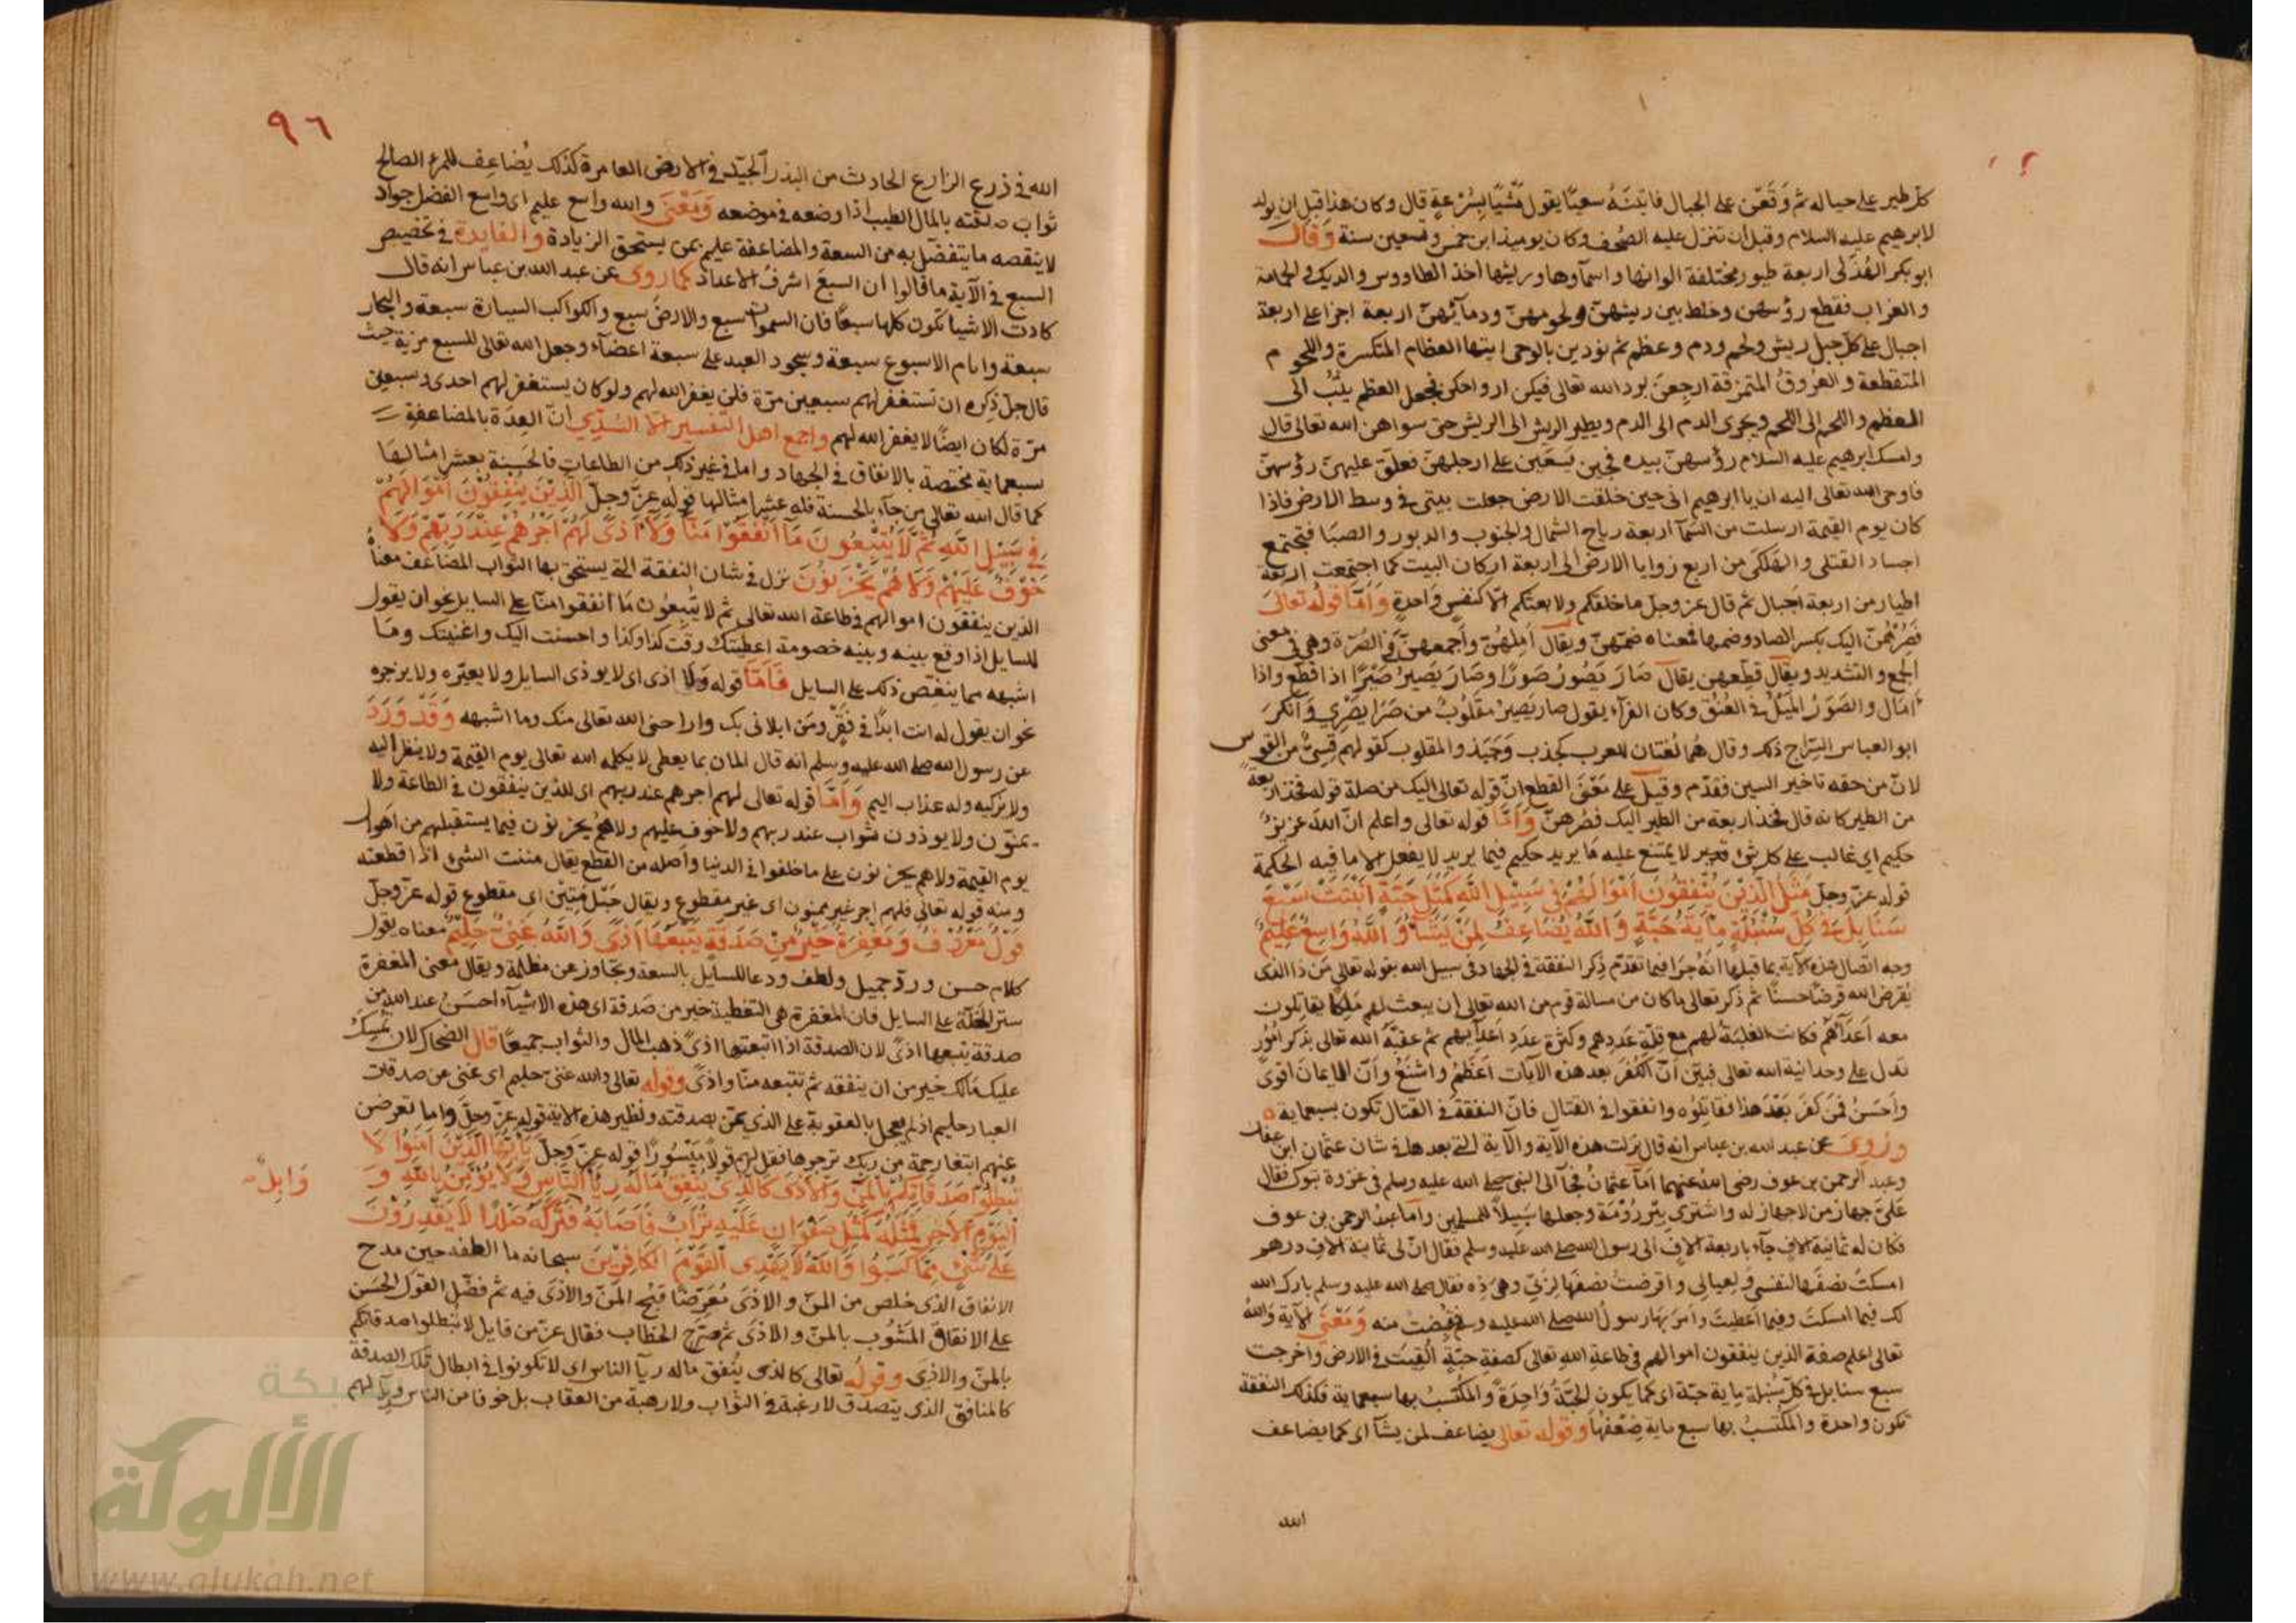 كل طير على حياله ثم وَقَعْنَ على الجبال فاتينَهُ سعيًا يقول مَشْيًا بِسُرْعةٍ قال وكان هذا قبل ان يولد
لابرهيم عليه السلام وقبل ان تنزل عليه الصُحف وكان يوميذ ابن خمس وتسعين سنة وَقَالَ
ابو بكر الهُذَلى اربعة طيور مختلفة الوانها واسمآوها وريشها اخذ الطاووس والديك والحمامة
والغراب فقطع رؤسهن وخلط بين ريشهنّ ولحومهنّ ودمآئهنّ اربعة اجزا على اربعة
اجبال على كل جبل ريش ولحم ودم وعظم ثم نودين بالوحى ايتها العظام المتكسرة واللحوم
المتقطعة والعُروقُ المتمزقة ارجِعنَ يرد الله تعالى فيكن ارواحكن فجعل العظم يثبُ الى
العظم واللحم الى اللحم ويجرى الدم الى الدم ويطير الريش الى الريش حتى سواهن الله تعالى قال
وامسك ابرهيم عليه السلام رؤسهنّ بيده فجين يَسعَين على ارجلهنّ فعلّق عليهنّ رؤسهنّ
فاوحى الله تعالى اليه ان يا ابرهيم انى حين خلقت الارض جعلت بيتى فى وسط الارض فاذا
كان يوم القيمة ارسلت من السمآ اربعة رياح الشمال والجنوب والدبور والصبَا فتجتمع
اجساد القتلى والهلكى من اربع زوايا الارض الى اربعة اركان البيت كما اجتمعت اربعة
اطيار من اربعة اجبال ثم قال عز وجل ما خلقكم ولا بعثكم الّا كنفسٍ واحدةٍ وَاَمّا قولُه تعالَى
فَصُرْهُنّ اليك بكسر الصاد وضمها فمعناه ضمّهنّ ويقال اَمِلهُنّ وأجمعهنّ فى الصُرّة وهى فى معنى
الجمع والتشديد ويقال قطِعهن يقال صَارَ يَصُورُ صَورًا وصَارَ يَصيرُ صَيْرًا اذا قطع واذا
امَال والصَوَرُ المَيلُ فى العُنُق وكان الفرآء يقول صار يَصيرُ مَقلوبٌ من صَرَا يَصْرِي وَانكرَ
ابو العباس السّراج ذلك وقال هُمَا لُغتان للعرب كجذب وَجَبَذ والمقلوب كقولهم قِسِيّ من القوس
لانّ من حقه تاخير السين فقدّم وقيل على مَعْنَى القطع انّ قوله تعالى اليك من صلة قوله فخذ اربعة
من الطير كانه قال فخذ اربعة من الطير اليك فصُرهنّ وَاَمّا قوله تعالى واعلم انّ اللهَ عزيزٌ
حكيم اى غالب على كل شئ قدير لا يمتنع عليه مَا يريد حكيم فيما يريد لا يفعل الا ما فيه الحكمة
قوله عزّ وجلّ مَثَلُ الَّذِيْنَ يُنْفِقُونَ اَمْوَالَهُمْ فِى سَبِيْلِ اللهِ كَمَثَلِ حَبّةٍ اَنْبَتَتْ سَبْعَ
سَنَابِلَ فِى كُلّ سُنْبُلَةٍ مِايَةُ حَبَّةٍ وَاللهُ يُضَاعِفُ لِمَنْ يَشَآءُ وَاللهُ وَاسِعٌ عَلِيمٌ
وجه اتصال هذه الآية بما قبلها انّه جرَا فيما تقدّم ذِكر النفقة فى الجهاد فى سبيل الله بقوله تعالى مَن ذا الذى
يُقرض الله قرضًا حسنًا ثم ذكر تعالى ما كان من مسالة قوم من الله تعالى اَن يبعث لهم مَلِكًا يقاتلون
معه اَعدآهُم فكانت الغلبَةُ لهم مع قلّة عَدَدِهم وكثرة عدَد اعدآيهم ثم عقبّه الله تعالى بذكر اُمورٍ
تدل على وحدانية الله تعالى فبيّن اَنّ الكُفرَ بعد هذه الآيات اَعظمُ واشنَعُ وَاَنّ الايمانَ اقوَى
واَحسَنُ فمن كفَر بَعْدَ هذا فقاتِلُوه وانفقوا فى القتال فانّ النفقة فى القتال تكون بسبعماية
ورُوِيَ عن عبد الله بن عباس انه قال نزلت هذه الآية والآية التى بعدها فى شان عثمان ابن عفان
وعبد الرحمن بن عوف رضى الله عنهما اَمّا عثمانُ فجآ الى النبى صلى الله عليه وسلم فى غزوة تبوك فقال
عَلَىّ جهاز من لا جهاز له واشترى بِئر رُوْمَة وجعلها سَبيلاً للمسلمين وامّا عبدُ الرحمن بن عوف
فكان له ثمانية الاف جآء باربعة الافٍ الى رسول الله صلى الله عليه وسلم فقال انّ لى ثمانية الاف درهم
امسكتُ نصفَها لنفسى وَلعيالى واقرضتُ نصفَها لِرَبّى وهى ذِه فقال صلى الله عليه وسلم بارك الله
لك فيما امسكتَ وفيما اَعطيتَ واَمرَ بهَا رسولُ الله صلى الله عليه وسلم فقُبِضتْ منه وَمَعْنَى الآية وَاللهُ
تعالى اعلم صفة الذين ينفقون اموالهم فى طاعة الله تعالى كصفةِ حبّةٍ اُلقِيَت فى الارض واخرجت
سبع سنابل فى كلّ سُنبلة ماية حبّة اى كما يكون الحبّةُ وَاحِدَةً والمكْتسَبُ بها سبعماية فكذلك النفقة
تكون واحدة والمكْتسَبُ بها سبع ماية ضِعْفِهَا وقوله تعالى يضاعف لمن يشآ اى كما يضاعف
الله
٩٦
الله فى زرع الزارع الحادث من البذر الجيّد فى الارض العامرة كذلك يُضاعِف للمرء الصالح
ثواب صدقته بالمال الطيب اذا وضعه فى موضعه وَمَعْنَى والله واسع عليم اى واسع الفضل جواد
لا ينقصه ما يتفضّل به من السعة والمضاعفة عليم بمن يستحق الزيادة والفايدة فى تخصيص
السبع فى الآية ما قالوا ان السبعَ اشرفُ الاعداد كما روى عن عبد الله بن عباس انه قال
كادت الاشيا تكون كلها سبعًا فان السموات سبع والارضَ سبع والكواكب السيارة سبعة والبحار
سبعة وايام الاسبوع سبعة وسجود العبد على سبعة اعضآء وجعل الله تعالى للسبع مزية حيث
قال جلّ ذِكره ان تستغفر لهم سبعين مرّة فلن يغفر الله لهم ولو كان يستغفر لهم احدى وسبعين
مرّة لكان ايضًا لا يغفر الله لهم واجمع اهل التفسير الّا السُدّي انّ العِدَة بالمضاعفةِ
سبعماية مختصة بالانفاق فى الجهاد واما فى غير ذلك من الطاعات فالحَسنة بعشر امثالها
كما قال الله تعالى من جآء بالحسنة فله عشر امثالها قوله عزّ وجلّ اَلَّذِيْنَ يُنْفِقُوْنَ اَمْوَالَهُمْ
فِى سَبِيْلِ اللهِ ثُمَّ لَا يُتْبِعُونَ مَآ اَنْفَقُوْا مَنًّا وَلَآ اَذًى لَهُمْ اَجْرُهُمْ عِنْدَ رَبِّهِمْ وَلَا
خَوْفٌ عَلَيْهِمْ وَلَا هُمْ يَحْزَنُوْنَ نزل فى شان النفقة التى يستحق بها الثواب المضاعف معناهُ
الذين ينفقون اموالهم فى طاعة الله تعالى ثم لا يُتْبِعُون مَا انفقوا منّا على السايل نحو ان يقول
للسايل اذا وقع بينه وبينه خصومة اعطيتك وقت كذا وكذا واحسنت اليك واغنيتك ومَا
اشبهه مما ينغّص ذلك على السايل فَاَمّا قوله وَلا اذى اى لا يوذى السايل ولا يعيّره ولا يزجره
نحو ان يقول له انت ابدًا فى فَقْرٍ ومَن ابلانى بك واراحنى الله تعالى منك وما اشبهه وَقَدْ وَرَدَ
عن رسول الله صلى الله عليه وسلم انه قال المان بما يعطى لا يكلمه الله تعالى يوم القيمة ولا ينظر اليه
ولا يزكيه وله عذاب اليم وَاَمّا قوله تعالى لهم اجرهم عند ربهم اى للذين ينفقون فى الطاعة ولا
يمنّون ولا يوذون ثواب عند ربهم ولا خوف عليهم ولا هُم يحزنون فيما يستقبلهم من اَهوال
يوم القيمة ولا هم يحزنون على ما خلفوا فى الدنيا واَصله من القطع يقال مننت الشئ اذا قطعته
ومنه قوله تعالى فلهم اجر غير ممنون اى غير مقطوعٍ ويقال حَبْل مَنِيْن اى مقطوع قوله عزّ وجلّ
قَوْلٌ مَعْرُوْفٌ وَمَغْفِرَةٌ خَيْرٌ مِنْ صَدَقَةٍ يَتْبَعُهَآ اَذًى وَاللهُ غَنِىٌّ حَلِيْمٌ معناه يقول
كلام حسن وردّ جميل ولطف ودعا للسآيل بالسعة وتجاوز عن مظلمة ويقال معنى المغفرة
ستر الخلّة على السايل فان المغفرة هى التغطية خير من صَدقة اى هذه الاشيآء احسَنُ عند الله من
صدقة تتبعها اذىً لان الصدقة اذا اتبعتها اذىً ذهب المال والثواب جميعًا قال الضحاك لان تمْسِك
عليك مَالك خير من ان ينفقه ثم تتبعه منّا واذىً وقوله تعالى والله غنىّ حليم اى غنى عن صدقات
العباد حليم اذ لم يعجل بالعقوبة على الذي يَمنّ بصدقته ونظير هذه الآية قوله عزّ وجلّ واما تعرضن
عنهم ابتغا رحمة من ربك ترجوها فقل لهم قولاً مَيْسُورًا قوله عزّ وجلّ يَآ اَيُّهَا الَّذِيْنَ اٰمَنُوْا لَا
تُبْطِلُوْا صَدَقَاتِكُمْ بِالْمَنِّ وَالْاَذَى كَالَّذِى يُنْفِقُ مَالَهُ رِيَآ النَّاسِ وَلَا يُؤْمِنُ بِاللهِ وَ
الْيَوْمِ الْاٰخِرِ فَمَثَلُهُ كَمَثَلِ صَفْوَانٍ عَلَيْهِ تُرَابٌ فَاَصَابَهُ فَتَرَكَهُ صَلْدًا لَا يَقْدِرُوْنَ
وَابِلٌ
عَلَى شَىْءٍ مِمَّا كَسَبُوا وَاللهُ لَا يَهْدِى الْقَوْمَ الْكَافِرِيْنَ سبحانه ما الطفه حين مدح
الانفاق الذى خلص من المنّ والاذى مُعَرّضًا قبْح المَنّ والاَذَى فيه ثم فضّل القَوْل الحَسَن
على الانفاق المَشُوب بالمنّ والاذَى ثم صَرّح الخطاب فقال عزّ من قايل لا تبطلوا صدقاتكم
بالمنّ والاذى وقولُه تعالى كالذى يُنفق ماله ريآ الناس اى لا تكونوا فى ابطال تلك الصدقة
كالمنافق الذى يتصدق لا رغبة فى الثواب ولا رهبة من العقاب بل خوفا من الناس وريآ لهم
شبكة
الألوكة
www.alukah.net